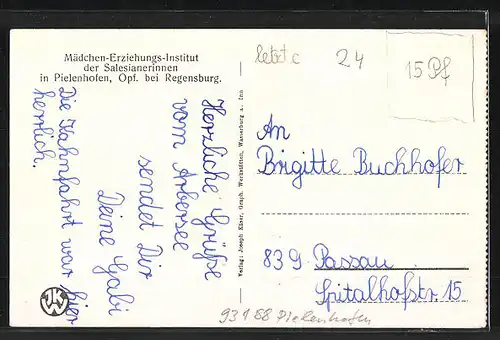 Mädchen-Erziehungs-Institut
der Salesianerinnen
in Pielenhofen, Opf. bei Regensburg.
Herzliche Grüße
vom Arbersee
sendet Dir
Deine Gabi
Die Kahnfahrt war hier
herrlich.
Verlag: Joseph Elser, Graph. Werkstätten, Wasserburg a. Inn
24
15 Pf
An
Brigitte Buchhofer
839 Passau
Spitalhofstr. 15
93188 Pielenhofen